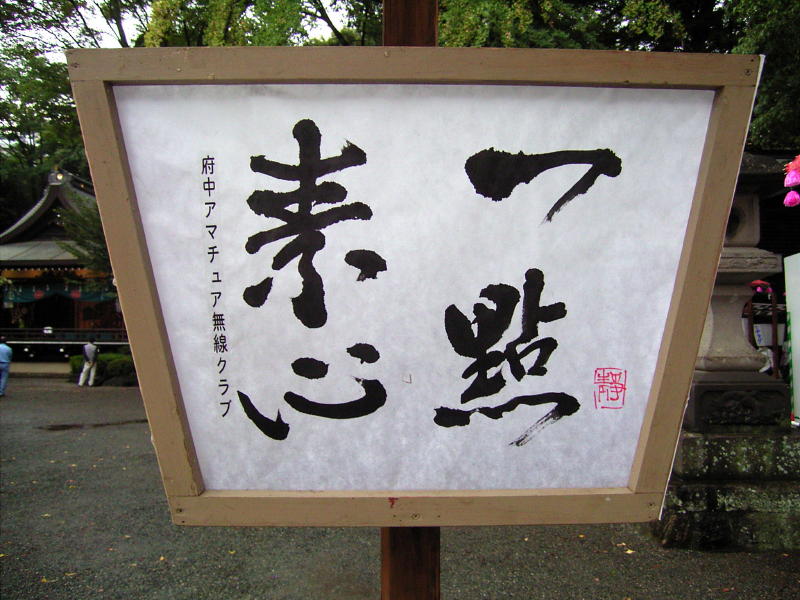 一點
素心
府中アマチュア無線クラブ
靜